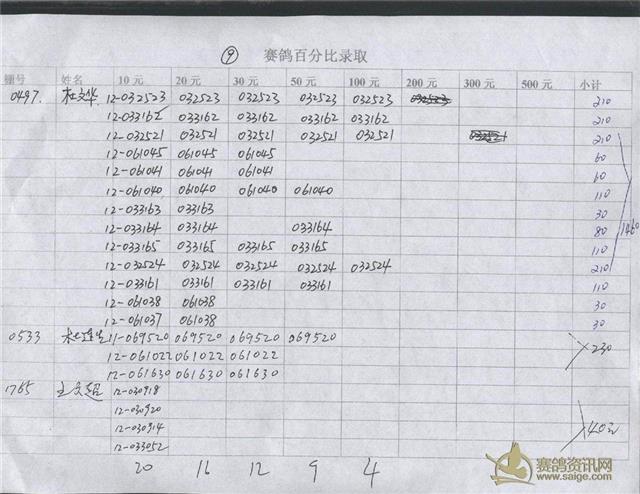 ⑨ 赛鸽百分比录取
棚号 姓名 10元 20元 30元 50元 100元 200元 300元 500元 小计
0497. 杜文华 12-032523 032523 032523 032523 032523 032523 210
12-033162 033162 033162 033162 033162 210
12-032521 032521 032521 032521 032521 032521 210
12-061045 061045 061045 60
12-061041 061041 061041 60
12-061040 061040 061040 061040 110
12-033163 033163 30
12-033164 033164 033164 80 1460
12-033165 033165 033165 033165 110
12-032524 032524 032524 032524 032524 210
12-033161 033161 033161 033161 110
12-061038 061038 30
12-061037 061037 30
0533 11-069520 069520 069520 069520
12-061022 061022 061022 230
12-061630 061630 061630
1765 王文超 12-030918
12-030920
12-030914 40元
12-033052
20 16 12 9 4
赛鸽资讯网
www.saige.com